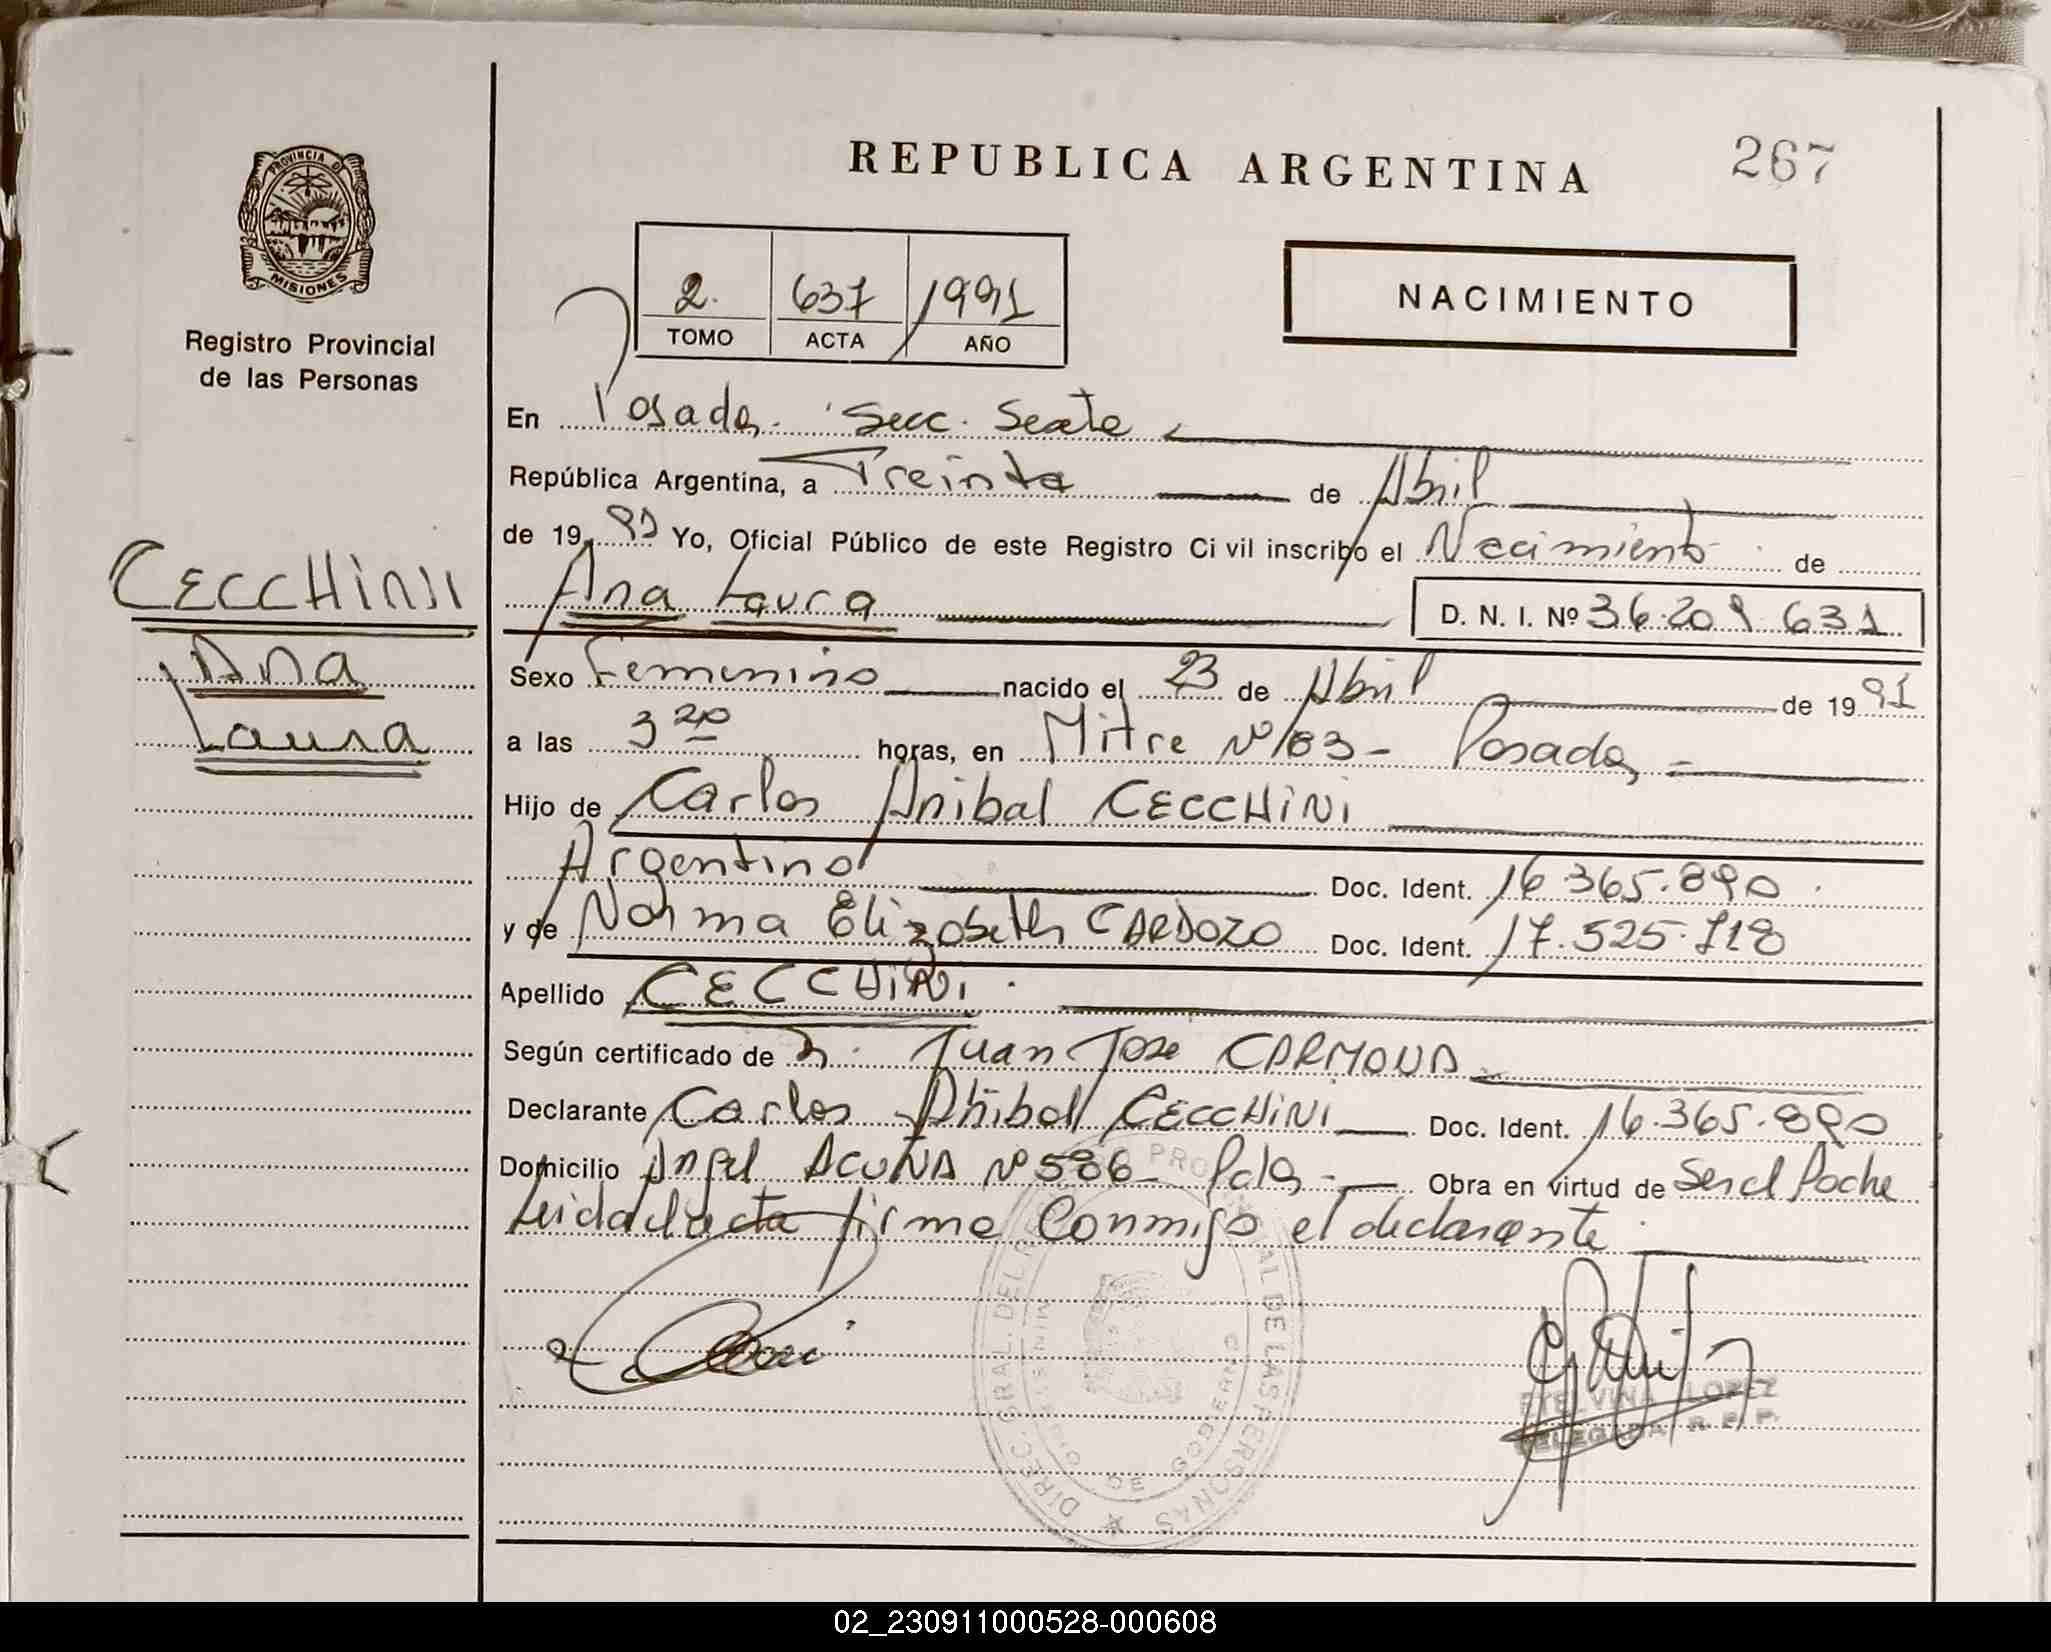 PROVINCIA DE
MISIONES
Registro Provincial
de las Personas
CECCHINI
Ana
Laura
REPUBLICA ARGENTINA
267
2. 637 1991
TOMO ACTA AÑO
NACIMIENTO
En Posadas. Secc. Sexta
República Argentina, a Treinta de Abril
de 19 91 Yo, Oficial Público de este Registro Civil inscribo el Nacimiento de
Ana Laura D. N. I. Nº 36.209.631
Sexo Femenino nacido el 23 de Abril de 19 91
a las 3 20 horas, en Mitre Nº 163 - Posadas
Hijo de Carlos Anibal CECCHINI
Argentino Doc. Ident. 16.365.890.
y de Norma Elizabeth CARDOZO Doc. Ident. 17.525.718
Apellido CECCHINI.
Según certificado de Dr. Juan Jose CARMONA
Declarante Carlos Anibal CECCHINI Doc. Ident. 16.365.890
Domicilio Angel ACUÑA Nº 586 - Pdas - Obra en virtud de Ser el Padre
Leida el acta firma Conmigo el declarante.
DIREC. GRAL. DEL REGISTRO PROVINCIAL DE LAS PERSONAS
MINISTERIO DE GOBIERNO
ETELVINA LOPEZ
DELEGADA R. P. P.
02_230911000528-000608